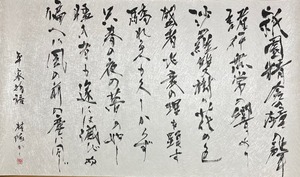 祇園精舎の鐘の聲
諸行無常の響あり
沙羅雙樹の花の色
盛者必衰の理を顕す
驕れる人も久しからず
只春の夜の夢の如し
猛き者も遂には滅ぬ
偏へに風の前の塵に同じ
平家物語